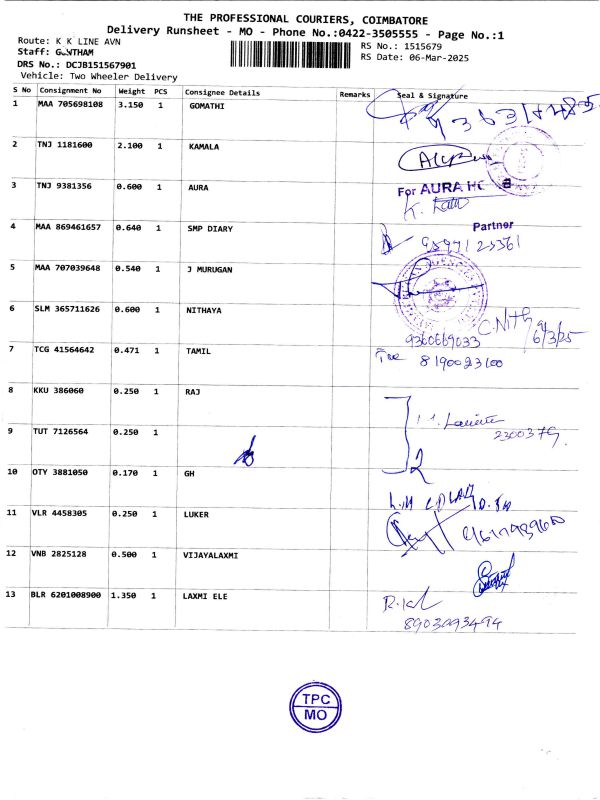 THE PROFESSIONAL COURIERS, COIMBATORE
Delivery Runsheet - MO - Phone No.:0422-3505555 - Page No.:1
Route: K K LINE AVN
RS No.: 1515679
Staff: GOWTHAM
RS Date: 06-Mar-2025
DRS No.: DCJB151567901
Vehicle: Two Wheeler Delivery
S No Consignment No Weight PCS Consignee Details Remarks Seal & Signature
1 MAA 705698108 3.150 1 GOMATHI
2 TNJ 1181600 2.100 1 KAMALA
3 TNJ 9381356 0.600 1 AURA
For AURA
K.
4 MAA 869461657 0.640 1 SMP DIARY
Partner
5 MAA 707039648 0.540 1 J MURUGAN
6 SLM 365711626 0.600 1 NITHAYA
9360669033
6/3/25
7 TCG 41564642 0.471 1 TAMIL
8190023100
8 KKU 386060 0.250 1 RAJ
2300379.
9 TUT 7126564 0.250 1
2
10 OTY 3881050 0.170 1 GH
11 VLR 4458305 0.250 1 LUKER
12 VNB 2825128 0.500 1 VIJAYALAXMI
13 BLR 6201008900 1.350 1 LAXMI ELE
8903093494
TPC
MO